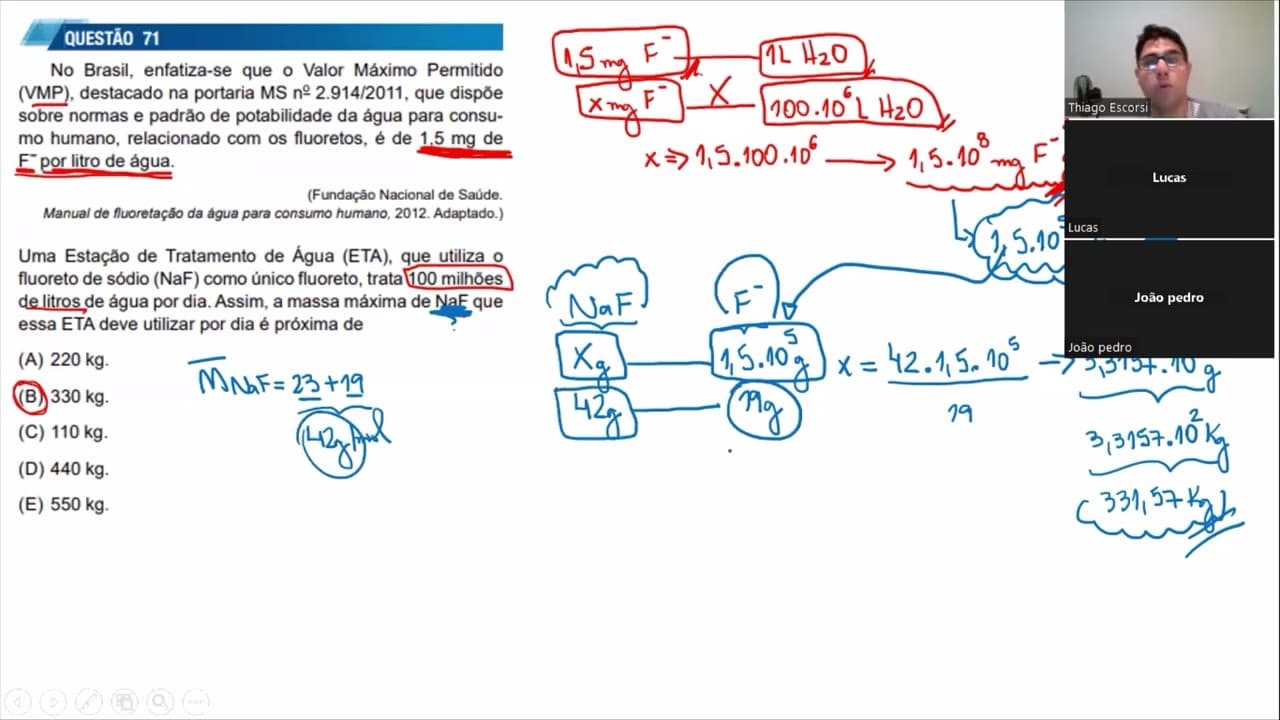 QUESTÃO 71
No Brasil, enfatiza-se que o Valor Máximo Permitido
(VMP), destacado na portaria MS nº 2.914/2011, que dispõe
sobre normas e padrão de potabilidade da água para consu-
mo humano, relacionado com os fluoretos, é de 1,5 mg de
F⁻ por litro de água.
(Fundação Nacional de Saúde.
Manual de fluoretação da água para consumo humano, 2012. Adaptado.)
Uma Estação de Tratamento de Água (ETA), que utiliza o
fluoreto de sódio (NaF) como único fluoreto, trata 100 milhões
de litros de água por dia. Assim, a massa máxima de NaF que
essa ETA deve utilizar por dia é próxima de
?
(A) 220 kg.
(B) 330 kg.
(C) 110 kg.
(D) 440 kg.
(E) 550 kg.
M NaF = 23 + 19
42g/mol
1,5 mg F⁻ 1L H2O
x mg F⁻ X 100.10⁶ L H2O
x => 1,5.100.10⁶ → 1,5.10⁸ mg F⁻
1,5.10⁵
NaF F⁻
Xg 1,5.10⁵g
42g 19g
x = 42.1,5.10⁵
19
→ 3,3157.10 g
3,3157.10² Kg
331,57 Kg
Thiago Escorsi
Lucas
Lucas
João pedro
João pedro